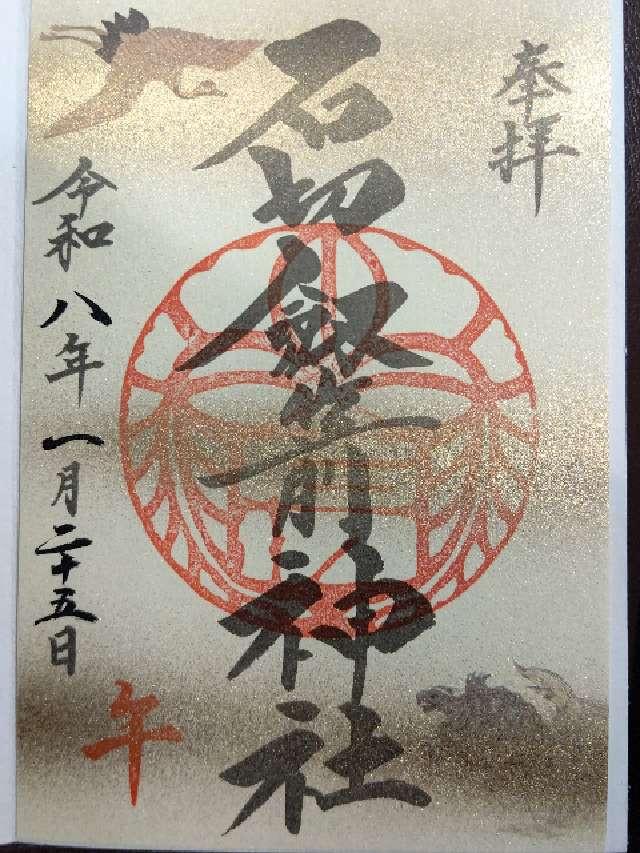 奉拝
石切劔箭神社
令和八年一月二十五日
午